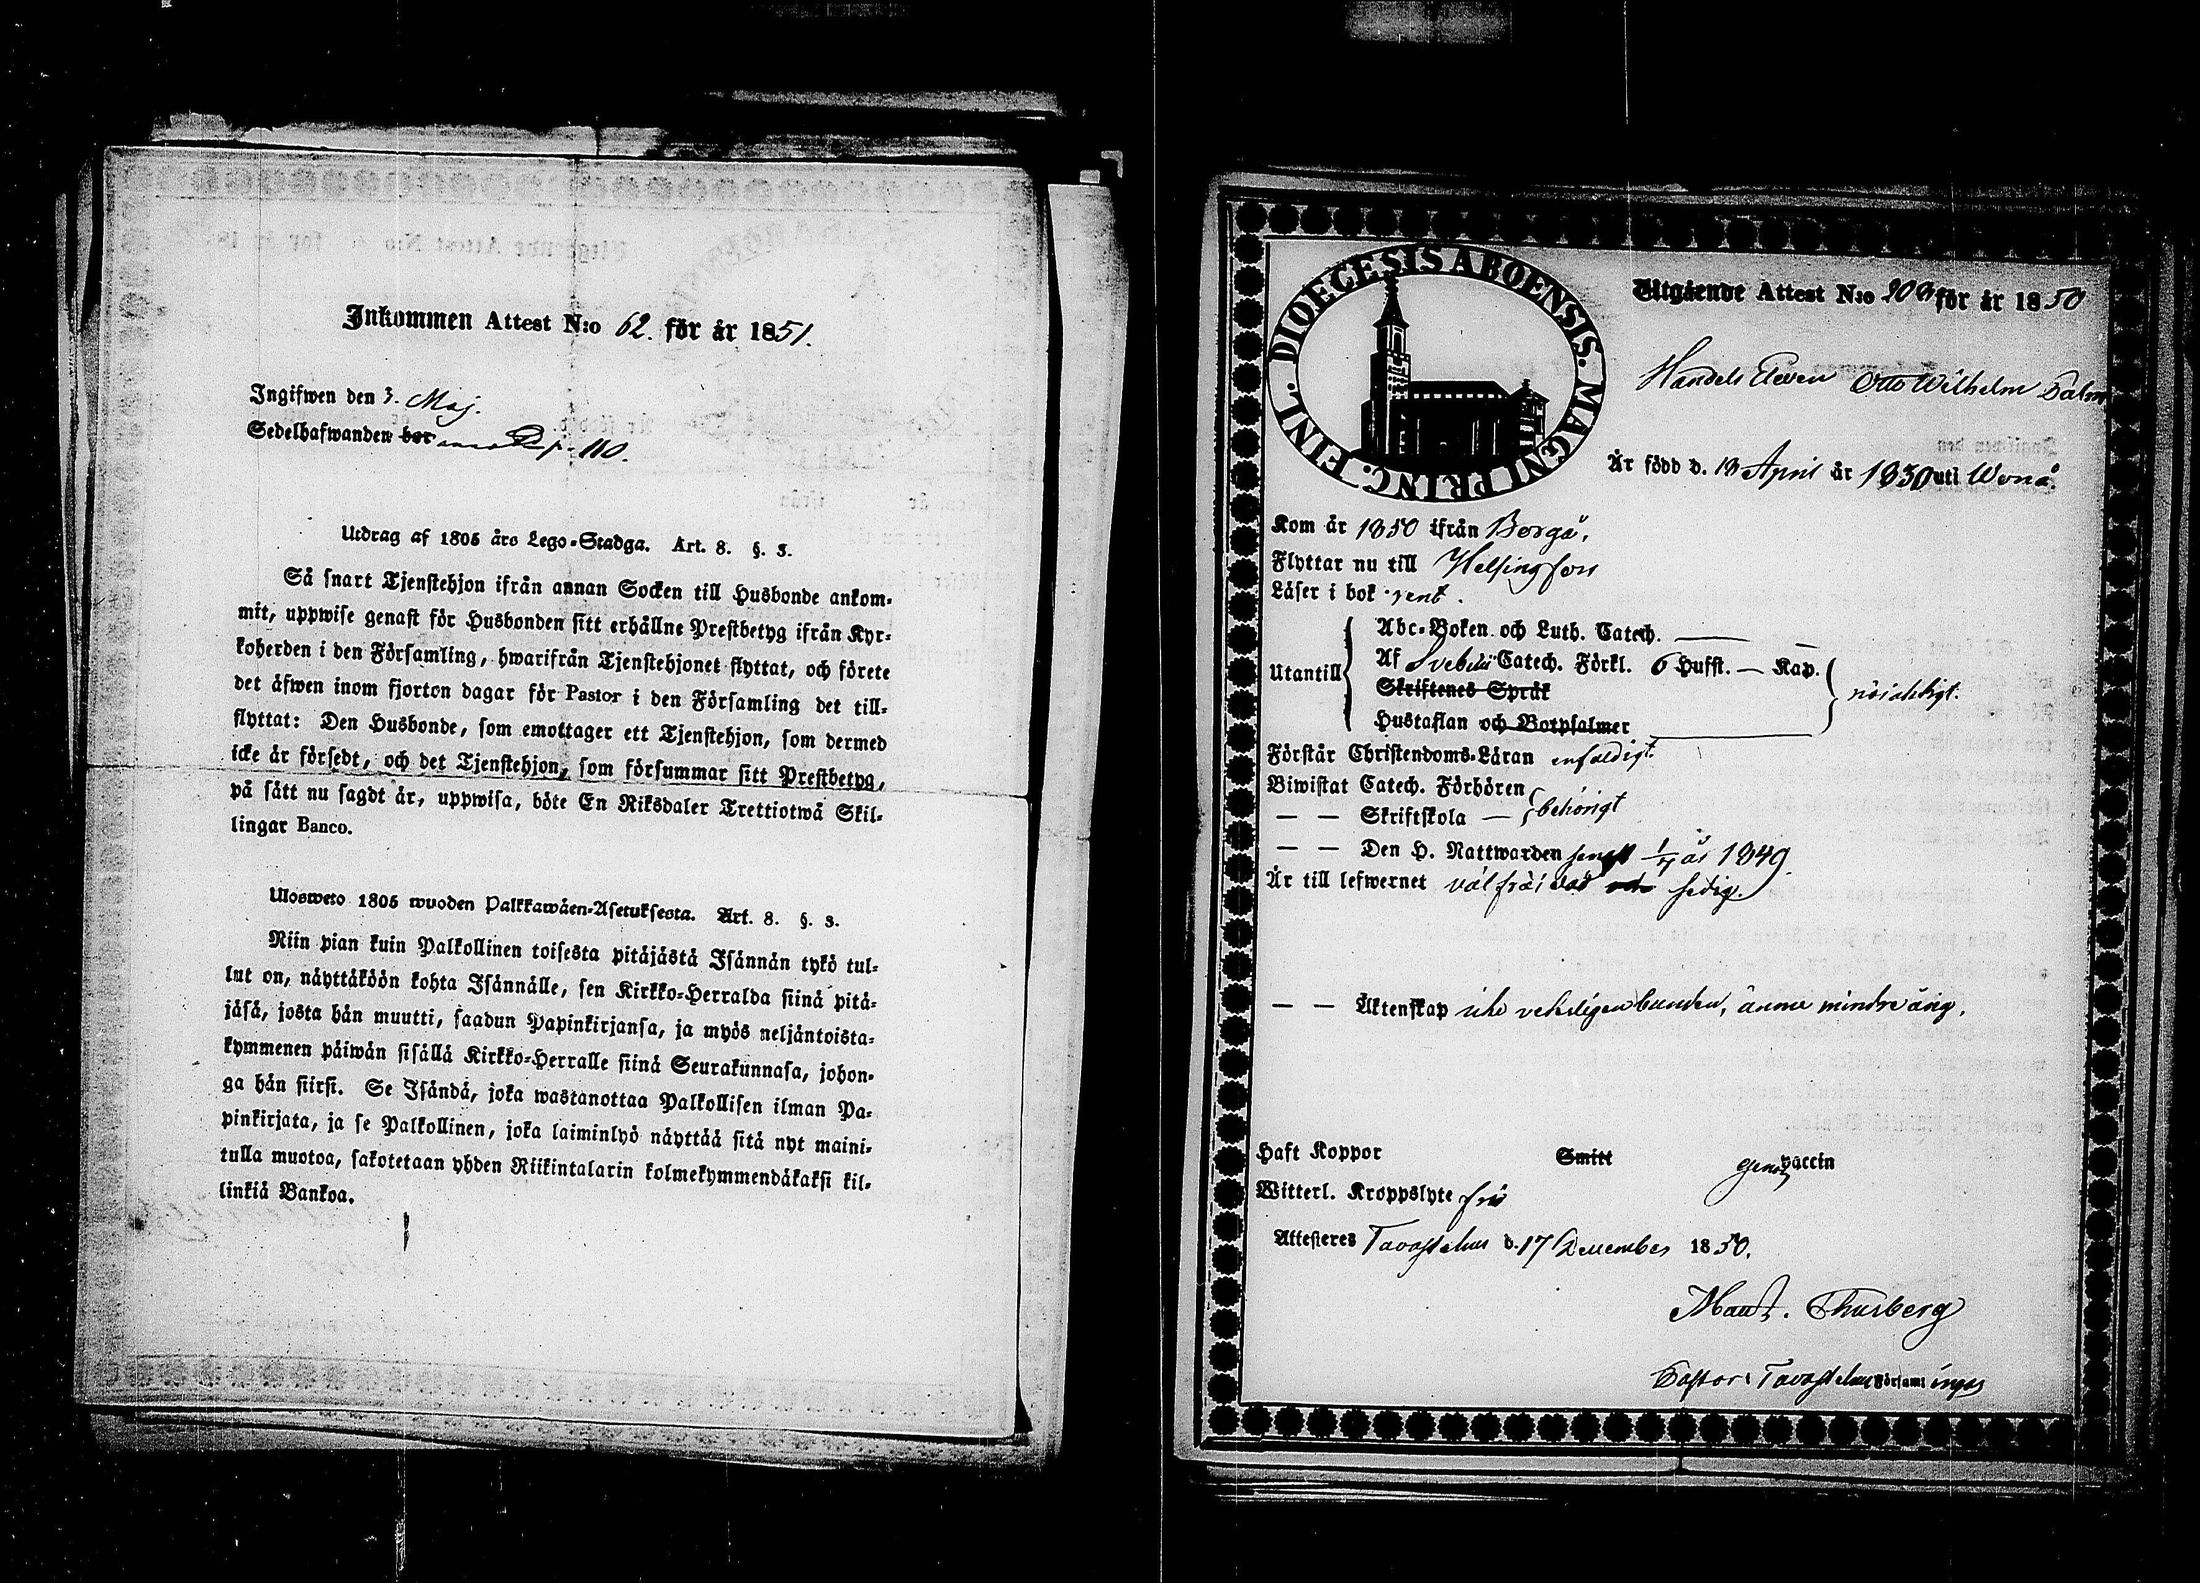 Inkommen Attest N:o 62. för år 1851.
Ingifwen den 3. Maj.
Sedelhafwanden bor p. 110.
Utdrag af 1805 års Lego-Stadga. Art. 8. §. 3.
Så snart Tjenstehjon ifrån annan Socken till Husbonde ankom-
mit, uppwise genast för Husbonden sitt erhållne Prestbetyg ifrån Kyr-
koherden i den Församling, hwarifrån Tjenstehjonet flyttat, och förete
det äfwen inom fjorton dagar för Pastor i den Församling det till-
flyttat: Den Husbonde, som emottager ett Tjenstehjon, som dermed
icke är försedt, och det Tjenstehjon, som försummar sitt Prestbetyg,
på sätt nu sagdt är, uppwisa, böte En Riksdaler Trettiotwå Skil-
lingar Banco.
Ulosweto 1805 wuoden Palkkawäen-Asetuksesta. Art. 8. §. 3.
Niin pian kuin Palkollinen toisesta pitäjästä Isännän tykö tul-
lut on, näyttäköön kohta Isännälle, sen Kirkko-Herralda siinä pitä-
jäsä, josta hän muutti, saadun Papinkirjansa, ja myös neljäntoista-
kymmenen päiwän sisällä Kirkko-Herralle siinä Seurakunnasa, johon-
ga hän siirsi. Se Isändä, joka wastanottaa Palkollisen ilman Pa-
pinkirjata, ja se Palkollinen, joka laiminlyö näyttää sitä nyt maini-
tulla muotoa, sakotetaan yhden Riikintalarin kolmekymmendäkaksi kil-
linkiä Bankoa.
DIOECESIS ABOENSIS. MAGNI PRINC. FINL.
Utgående Attest N:o för år 1850
Handels Eleven Otto Wilhelm Palm
Är född d. 18 April år 1830 uti Wånå.
Kom år 1850 ifrån Borgå.
Flyttar nu till Helsingfors
Läser i bok rent.
Utantill
Abc-Boken och Luth. Catech.
Af Svebelii Catech. Förkl. 6 Hufst. — Kap.
Skriftenes Språk
Hustaflan och Botpsalmer
nöjaktigt.
Förstår Christendoms-Läran enfaldigt.
Biwistat Catech. Förhören
— — Skriftskola — behörigt
— — Den H. Nattwarden senast 1/7 år 1849.
Är till lefwernet välfräjdad och sedig.
— — Äktenskap icke veterligen bunden, ännu minderårig.
Haft Koppor Smitt genom vaccin
Witterl. Kroppslyte fri
Attesteras Tavastehus d. 17 December 1850.
Maur. Thurberg
Pastor i Tavastehus Församlingar